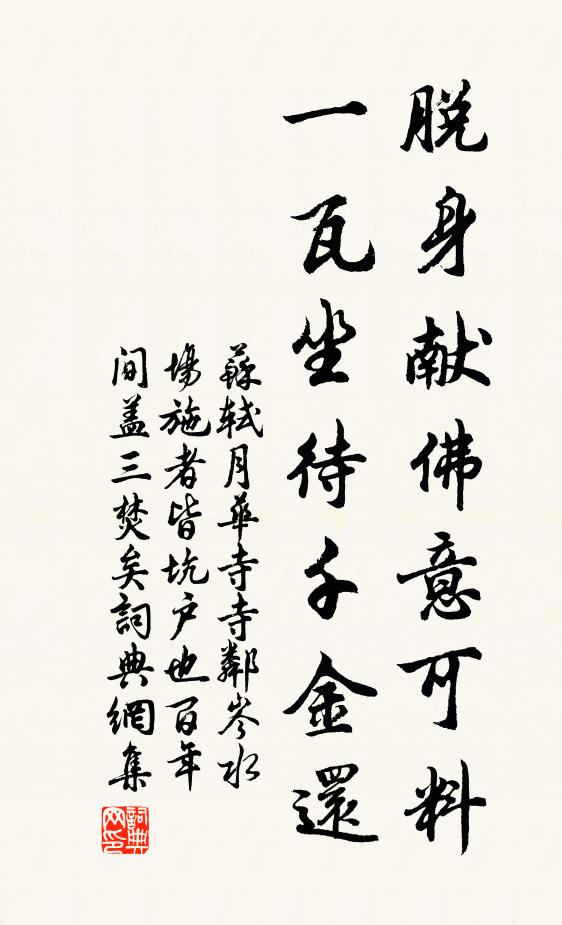 脱身献佛意可料
一瓦坐待千金還
蘇軾月華寺寺鄰岑水
場施者皆坑户也百年
间盖三焚矣詞典網集
詞典
网印